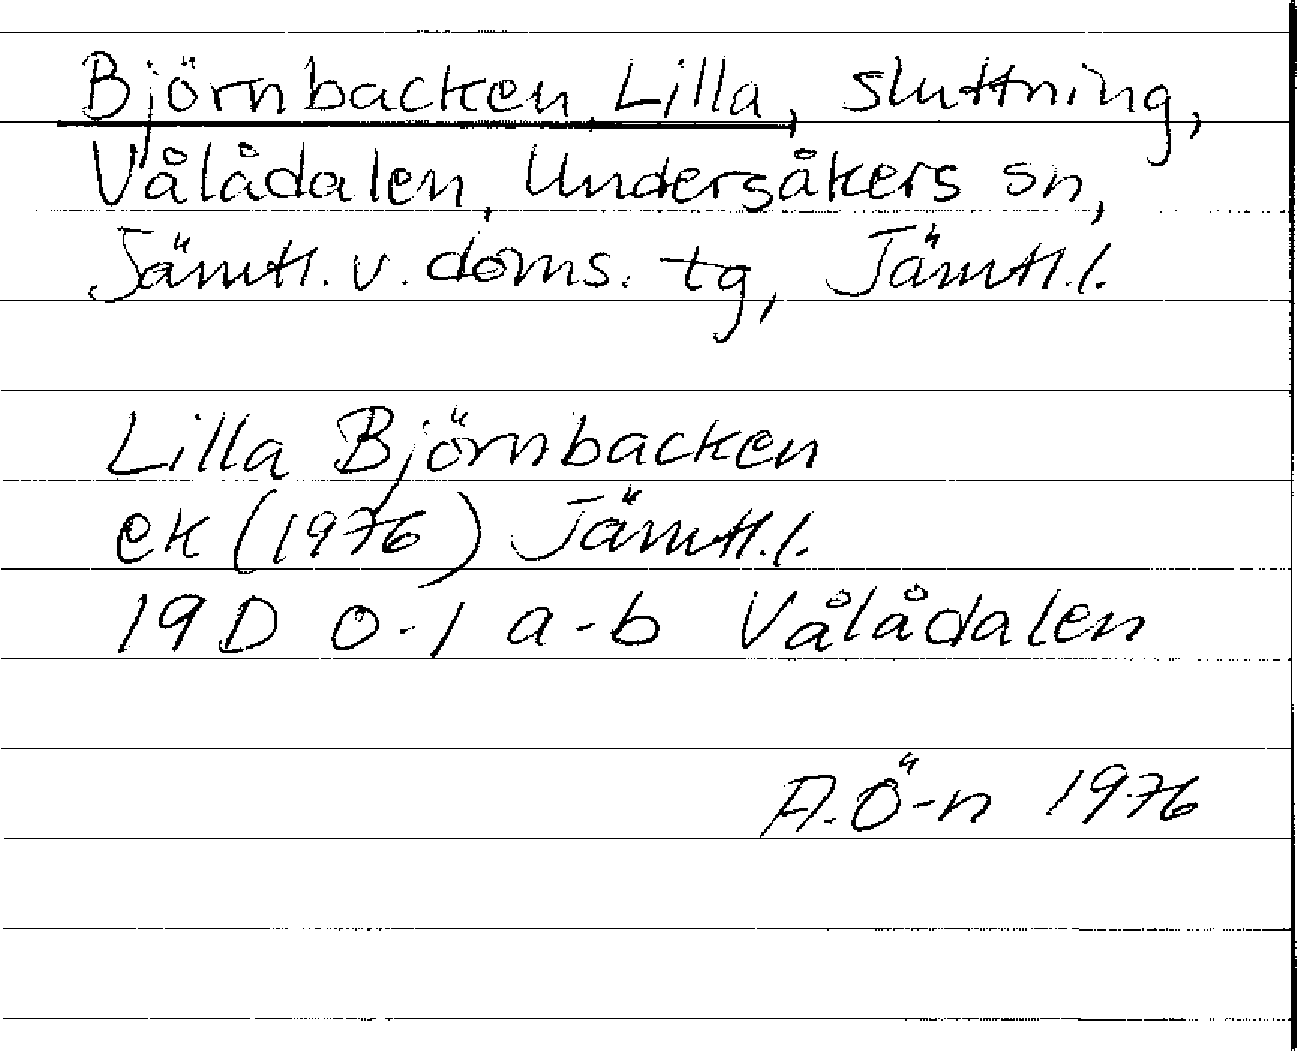 Björnbacken, Lilla, sluttning,
Vålådalen, Undersåkers sn,
Jämtl. v. doms. tg, Jämtl.l.
Lilla Björnbacken
ek (1976) Jämtl.l.
19D 0-1 a-b Vålådalen
A.Ö-n 1976